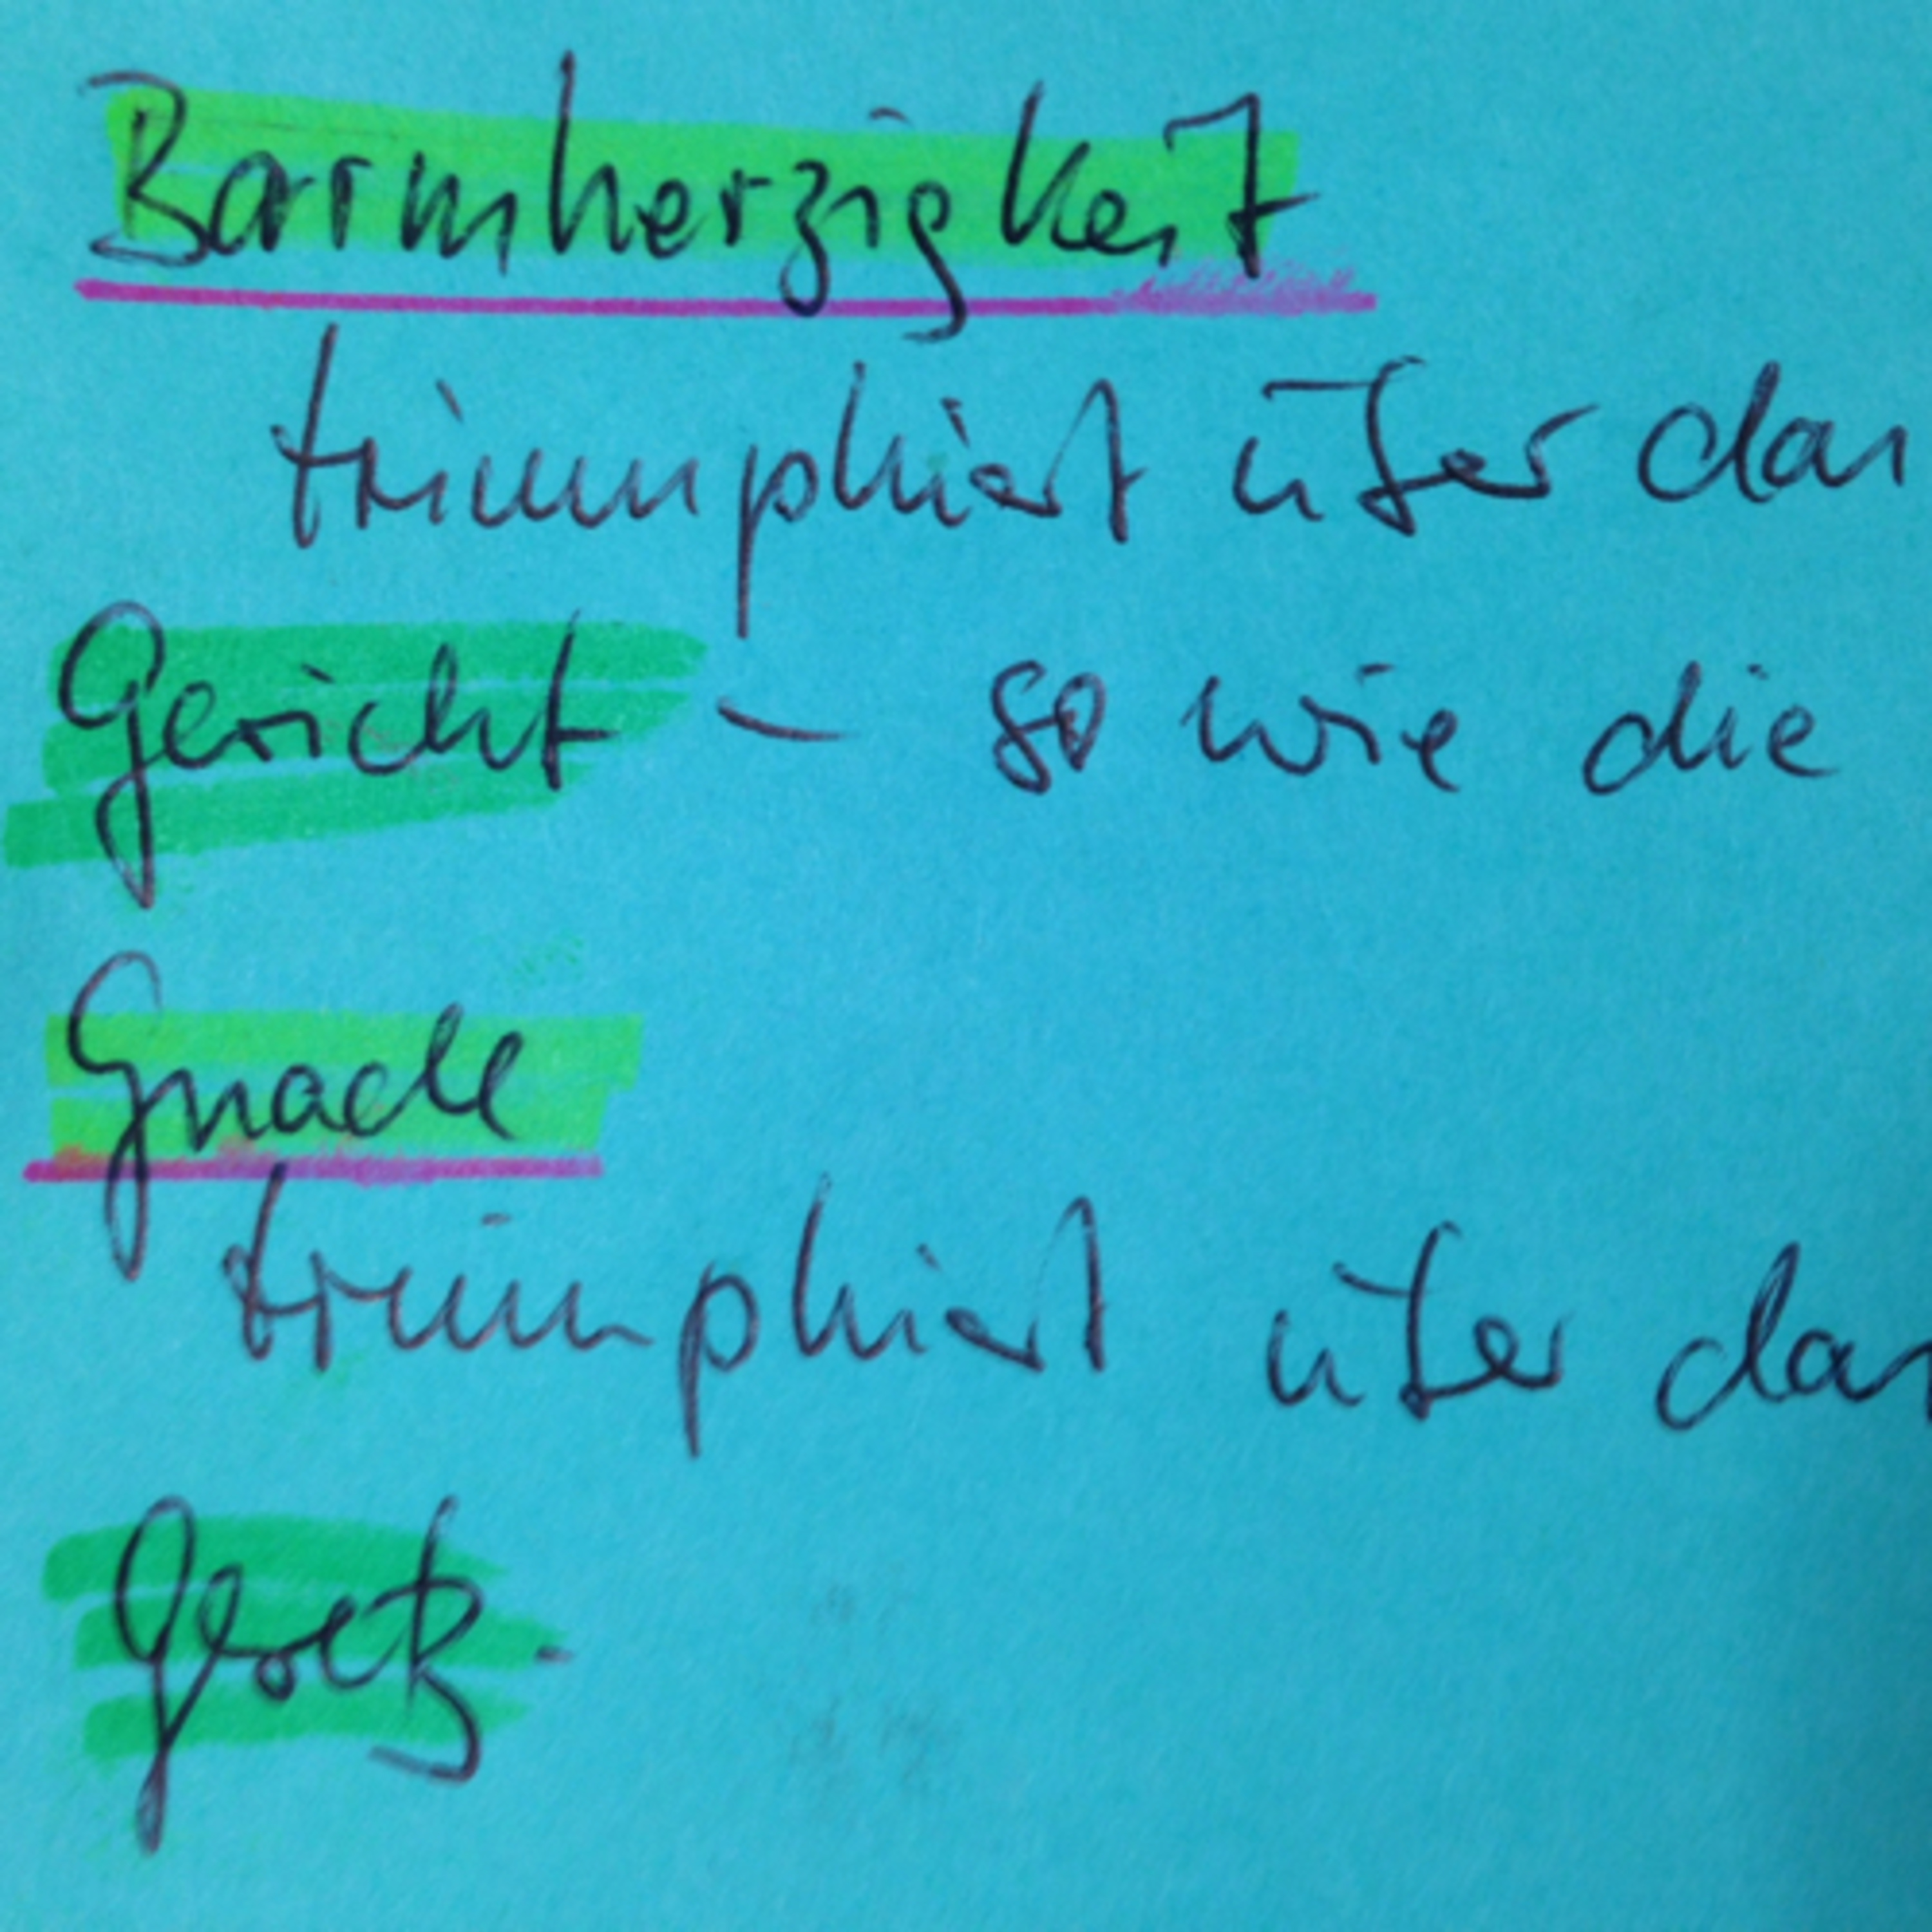 Barmherzigkeit
triumphiert über das
Gericht – so wie die
Gnade
triumphiert über das
Gesetz.